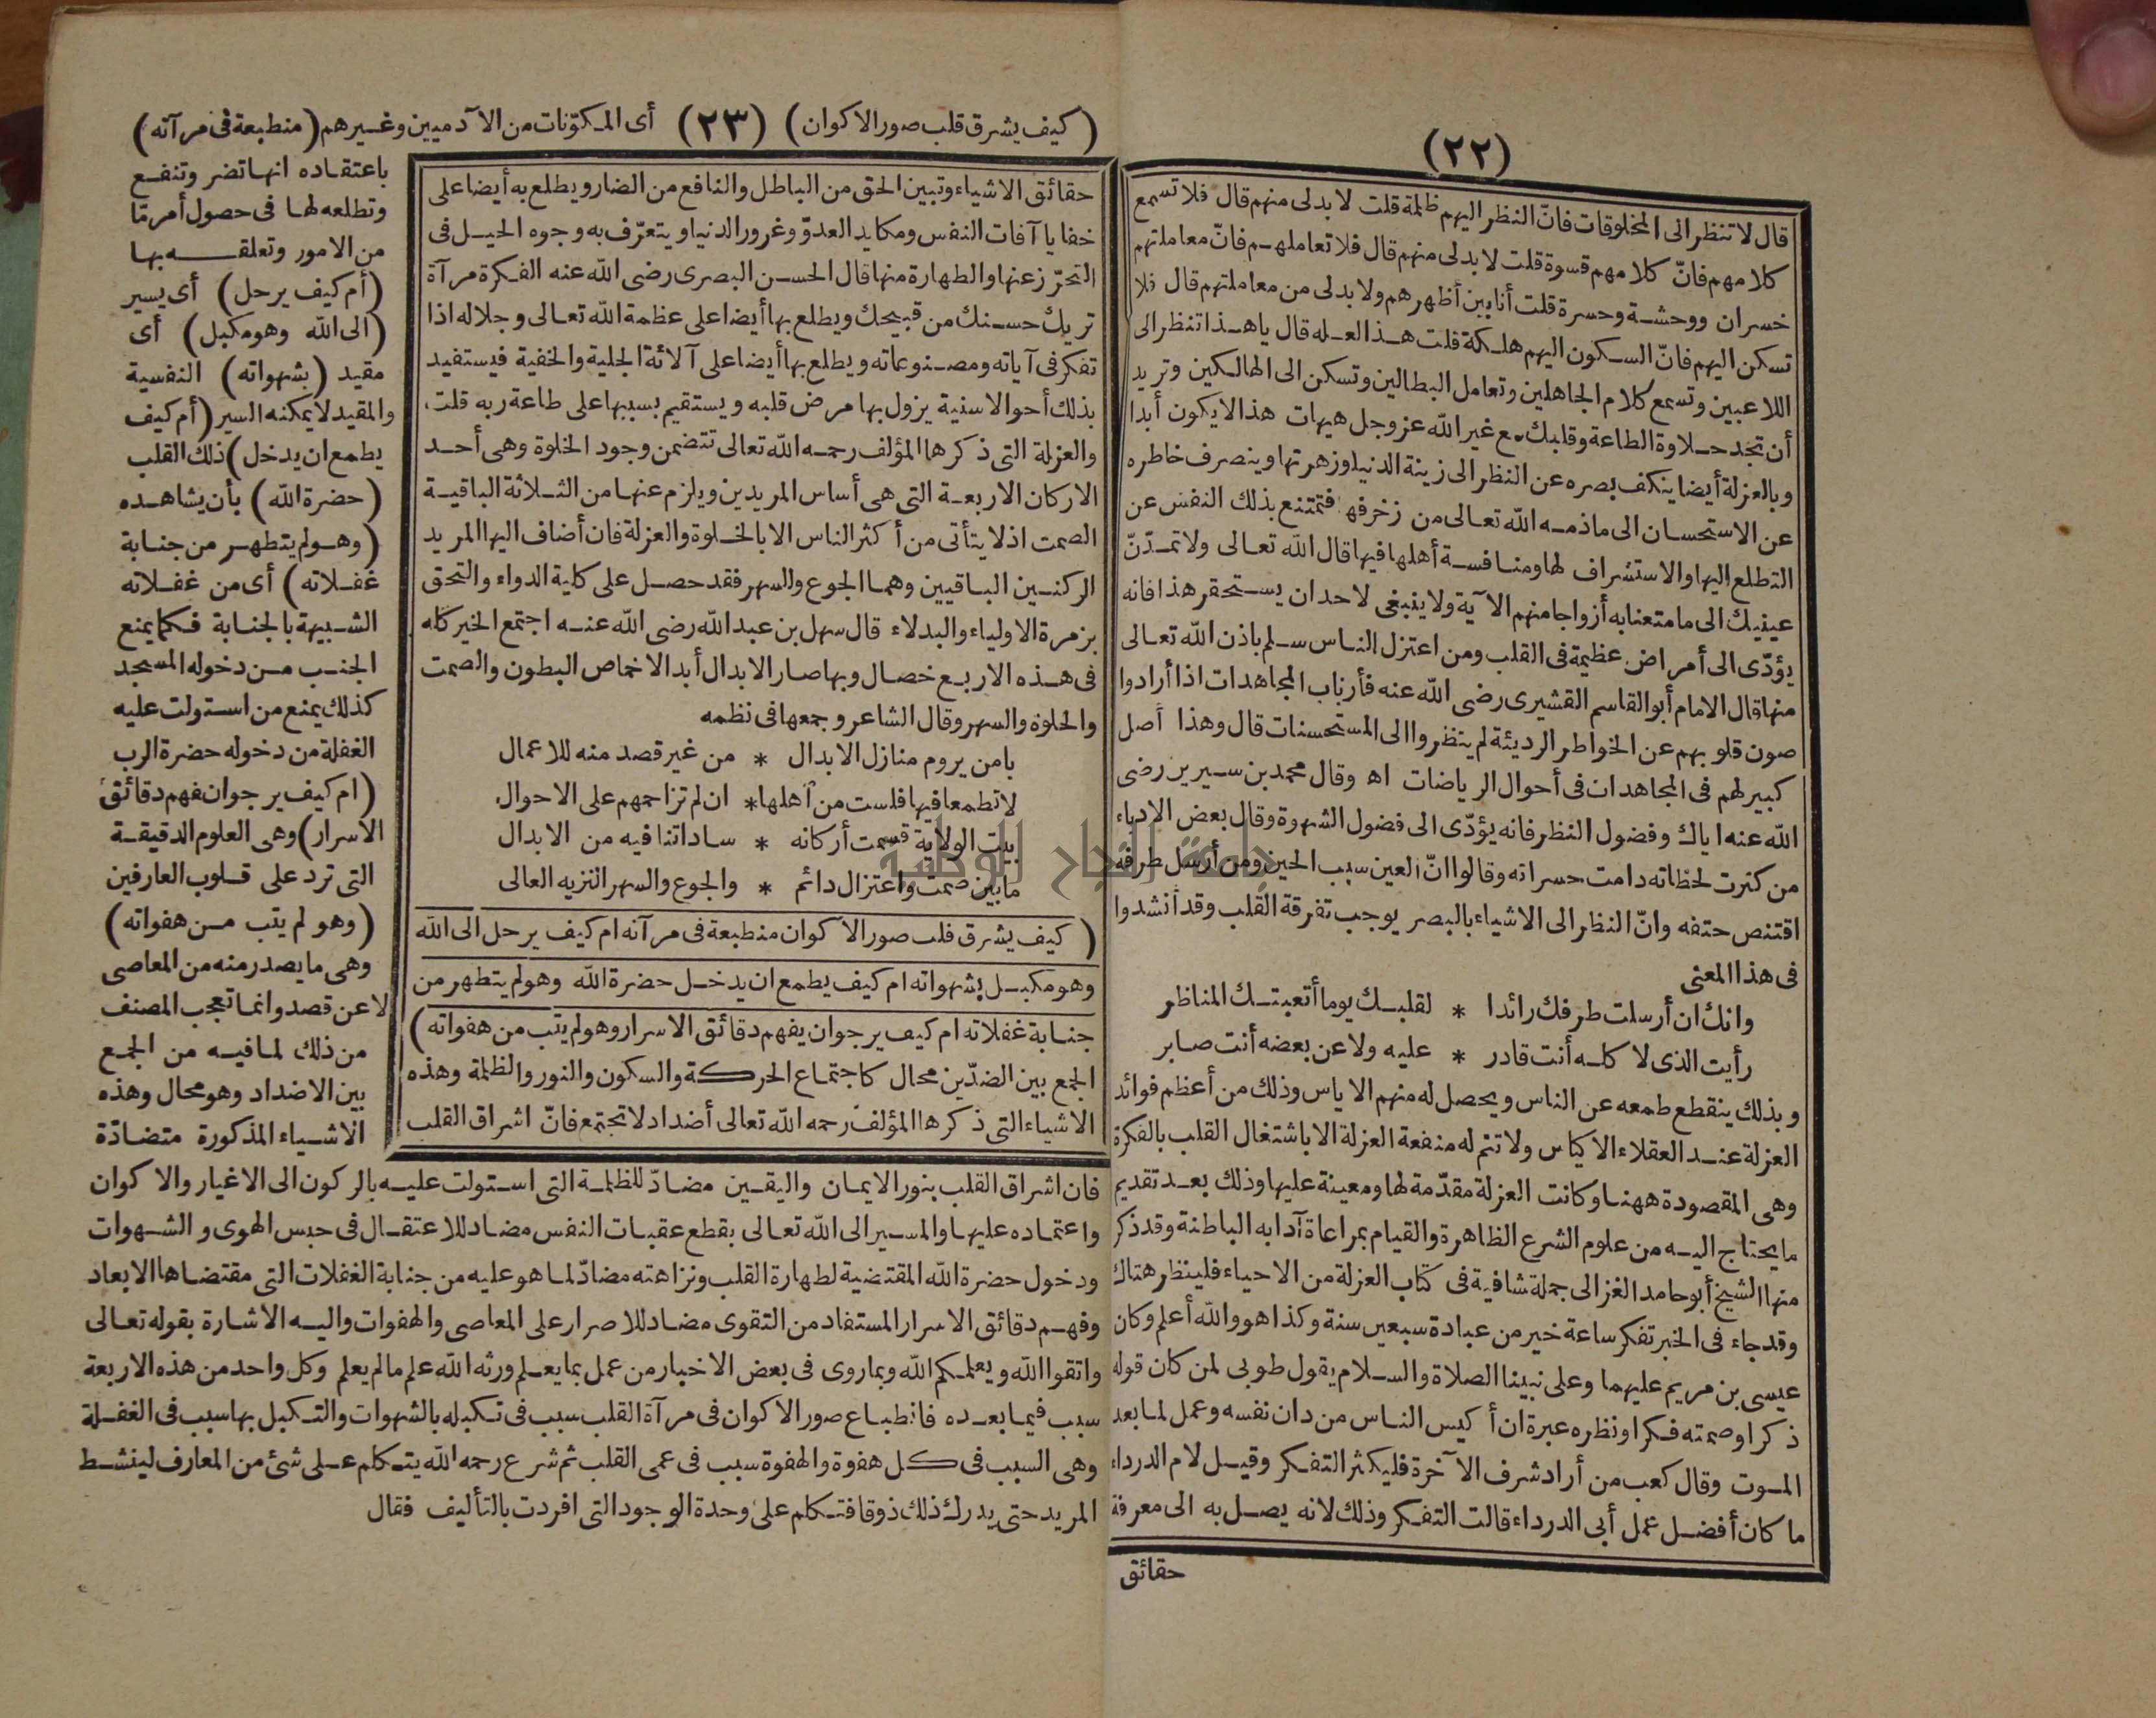 (٢٢)
قال لا تنظر الى المخلوقات فانّ النظر اليهم ظلمة قلت لا بد لى منهم قال فلا تسمع
كلامهم فانّ كلامهم قسوة قلت لا بد لى منهم قال فلا تعاملهم فانّ معاملتهم
خسران ووحشة وحسرة قلت أنا بين أظهرهم ولا بد لى من معاملتهم قال فلا
تسكن اليهم فانّ السكون اليهم هلكة قلت هذا العله قال يا هذا تنظر الى
اللاعبين وتسمع كلام الجاهلين وتعامل البطالين وتسكن الى الهالكين وتريد
أن تجد حلاوة الطاعة وقلبك مع غير الله عز وجل هيهات هذا لا يكون أبدا
وبالعزلة أيضا ينكف بصره عن النظر الى زينة الدنيا وزهرتها وينصرف خاطره
عن الاستحسان الى ماذمه الله تعالى من زخرفها فتمتنع بذلك النفس عن
التطلع اليها والاستشراف لها ومنافسة أهلها فيها قال الله تعالى ولا تمدّنّ
عينيك الى ما متعنا به أزواجا منهم الآية ولا ينبغى لاحد ان يستحقر هذا فانه
يؤدّى الى أمراض عظيمة فى القلب ومن اعتزل الناس سلم باذن الله تعالى
منها قال الامام أبو القاسم القشيرى رضى الله عنه فأرباب المجاهدات اذا أرادوا
صون قلوبهم عن الخواطر الرديئة لم ينظروا الى المستحسنات قال وهذا أصل
كبير لهم فى المجاهدات فى أحوال الرياضات اه وقال محمد بن سيرين رضى
الله عنه اياك وفضول النظر فانه يؤدّى الى فضول الشهوة وقال بعض الادباء
من كثرت لحظاته دامت حسراته وقالوا انّ العين سبب الحين ومن أرسل طرفه
اقتنص حتفه وانّ النظر الى الاشياء بالبصر يوجب تفرقة القلب وقد أنشدوا
فى هذا المعنى
وانك ان أرسلت طرفك رائدا * لقلبك يوما أتعبتك المناظر
رأيت الذى لا كله أنت قادر * عليه ولا عن بعضه أنت صابر
وبذلك ينقطع طمعه عن الناس ويحصل له منهم الاياس وذلك من أعظم فوائد
العزلة عند العقلاء الاكياس ولا تتم له منفعة العزلة الا باشتغال القلب بالفكرة
وهى المقصودة ههنا وكانت العزلة مقدّمة لها ومعينة عليها وذلك بعد تقديم
ما يحتاج اليه من علوم الشرع الظاهرة والقيام بمراعاة آدابه الباطنة وقد ذكر
منها الشيخ أبو حامد الغزالى جملة شافية فى كتاب العزلة من الاحياء فلينظر هناك
وقد جاء فى الخبر تفكر ساعة خير من عبادة سبعين سنة وكذا هو والله أعلم وكان
عيسى بن مريم عليهما وعلى نبينا الصلاة والسلام يقول طوبى لمن كان قوله
ذكرا وصمته فكرا ونظره عبرة ان أكيس الناس من دان نفسه وعمل لما بعد
الموت وقال كعب من أراد شرف الآخرة فليكثر التفكر وقيل لام الدرداء
ما كان أفضل عمل أبى الدرداء قالت التفكر وذلك لانه يصل به الى معرفة
حقائق
(كيف يشرق قلب صور الاكوان) (٢٣) أى المكوّنات من الآدميين وغيرهم (منطبعة فى مرآته)
حقائق الاشياء وتبين الحق من الباطل والنافع من الضار ويطلع به أيضا على
خفايا آفات النفس ومكايد العدوّ وغرور الدنيا ويتعرّف به وجوه الحيل فى
التحرّز عنها والطهارة منها قال الحسن البصرى رضى الله عنه الفكرة مرآة
تريك حسنك من قبيحك ويطلع بها أيضا على عظمة الله تعالى وجلاله اذا
تفكر فى آياته ومصنوعاته ويطلع بها أيضا على آلائه الجلية والخفية فيستفيد
بذلك أحوالا سنية يزول بها مرض قلبه ويستقيم بسببها على طاعة ربه قلت
والعزلة التى ذكرها المؤلف رحمه الله تعالى تتضمن وجود الخلوة وهى أحد
الاركان الاربعة التى هى أساس المريدين ويلزم عنها من الثلاثة الباقية
الصمت اذ لا يتأتى من أكثر الناس الا بالخلوة والعزلة فان أضاف اليها المريد
الركنين الباقيين وهما الجوع والسهر فقد حصل على كلية الدواء والتحق
بزمرة الاولياء والبدلاء قال سهل بن عبد الله رضى الله عنه اجتمع الخير كله
فى هذه الاربع خصال وبها صار الابدال أبدالا خماص البطون والصمت
والخلوة والسهر وقال الشاعر وجمعها فى نظمه
يامن يروم منازل الابدال * من غير قصد منه للاعمال
لا تطمعا فيها فلست من أهلها * ان لم تزاحمهم على الاحوال
بيت الولاية قسمت أركانه * ساداتنا فيه من الابدال
ما بين صمت واعتزال دائم * والجوع والسهر النزيه العالى
(كيف يشرق قلب صور الاكوان منطبعة فى مرآته ام كيف يرحل الى الله
وهو مكبل بشهواته ام كيف يطمع ان يدخل حضرة الله وهو لم يتطهر من
جنابة غفلاته ام كيف يرجو ان يفهم دقائق الاسرار وهو لم يتب من هفواته)
الجمع بين الضدّين محال كاجتماع الحركة والسكون والنور والظلمة وهذه
الاشياء التى ذكرها المؤلف رحمه الله تعالى أضداد لا تجتمع فانّ اشراق القلب
باعتقاده انها تضر وتنفع
وتطلعه لها فى حصول أمر مّا
من الامور وتعلقه بها
(أم كيف يرحل) أى يسير
(الى الله وهو مكبل) أى
مقيد (بشهواته) النفسية
والمقيد لا يمكنه السير (أم كيف
يطمع ان يدخل) ذلك القلب
(حضرة الله) بأن يشاهده
(وهو لم يتطهر من جنابة
غفلاته) أى من غفلاته
الشبيهة بالجنابة فكما يمنع
الجنب من دخوله المسجد
كذلك يمنع من استولت عليه
الغفلة من دخوله حضرة الرب
(ام كيف يرجو ان يفهم دقائق
الاسرار) وهى العلوم الدقيقة
التى ترد على قلوب العارفين
(وهو لم يتب من هفواته)
وهى ما يصدر منه من المعاصى
لا عن قصد وانما تعجب المصنف
من ذلك لما فيه من الجمع
بين الاضداد وهو محال وهذه
الاشياء المذكورة متضادّة
فان اشراق القلب بنور الايمان واليقين مضادّ للظلمة التى استولت عليه بالركون الى الاغيار والاكوان
واعتماده عليها والمسير الى الله تعالى بقطع عقبات النفس مضاد للاعتقال فى حبس الهوى والشهوات
ودخول حضرة الله المقتضية لطهارة القلب ونزاهته مضادّ لما هو عليه من جنابة الغفلات التى مقتضاها الابعاد
وفهم دقائق الاسرار المستفاد من التقوى مضاد للاصرار على المعاصى والهفوات واليه الاشارة بقوله تعالى
واتقوا الله ويعلمكم الله وبما روى فى بعض الاخبار من عمل بما يعلم ورثه الله علم مالم يعلم وكل واحد من هذه الاربعة
سبب فيما بعده فانطباع صور الاكوان فى مرآة القلب سبب فى تكبله بالشهوات والتكبل بها سبب فى الغفلة
وهى السبب فى كل هفوة والهفوة سبب فى عمى القلب ثم شرع رحمه الله يتكلم على شئ من المعارف لينشط
المريد حتى يدرك ذلك ذوقا فتكلم على وحدة الوجود التى افردت بالتأليف فقال
جامعة النجاح الوطنية